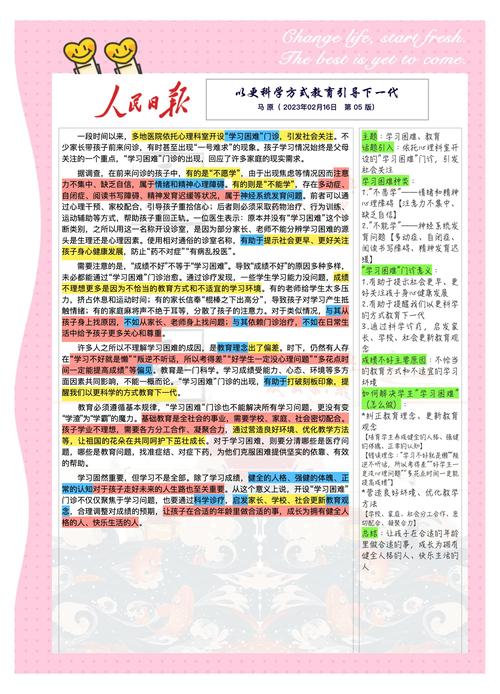 Change life, start fresh.
The best is yet to come.
人民日报
以更科学方式教育引导下一代
马 原（ 2023年02月16日　第 05 版）
一段时间以来，多地医院依托心理科室开设“学习困难”门诊，引发社会关注。不
少家长带孩子前来问诊，有时甚至出现“一号难求”的现象。孩子学习情况始终是父母
关注的一个重点，“学习困难”门诊的出现，回应了许多家庭的现实需求。
据调查，在前来问诊的孩子中，有的是“不愿学”，由于出现焦虑等情况因而注意
力不集中、缺乏自信，属于情绪和精神心理障碍。有的则是“不能学”，存在多动症、
自闭症、阅读书写障碍、精神发育迟缓等状况，属于神经系统发育问题。前者可以通
过心理干预、家校配合，引导孩子重拾信心；后者则必须采取药物治疗、行为训练、
运动辅助等方式，帮助孩子重回正轨。一位医生表示：原本并没有“学习困难”这个诊
断类别，之所以用这一名称开设诊室，是因为部分家长、老师不能分辨学习困难的源
头是生理还是心理因素。使用相对通俗的诊室名称，有助于提示社会更早、更好关注
孩子身心健康发展，防止“药不对症”“有病乱投医”。
需要注意的是，“成绩不好”不等于“学习困难”。导致“成绩不好”的原因多种多样，
未必都能通过“学习困难”门诊治愈。通过诊疗，发现一些学生学习能力没问题，成绩
不理想更多是因为不恰当的教育方式和不适宜的学习环境。有的老师给学生太多压
力，挤占休息和运动时间；有的家长信奉“棍棒之下出高分”，导致孩子对学习产生抵
触情绪；有的家庭麻将声不绝于耳等，分散了孩子的注意力。对于类似情况，与其从
孩子身上找原因，不如从家长、老师身上找问题；与其依赖门诊治疗，不如在日常生
活中给予孩子更多关心和尊重。
许多人之所以不理解学习困难的成因，是教育理念出了偏差。时下，仍然有人存
在“学习不好就是懒”“叛逆不听话，所以考得差”“好学生一定没心理问题”“多花点时
间一定能提高成绩”等偏见。教育是一门科学。学习成绩受能力、心态、环境等多方
面因素共同影响，不能一概而论。“学习困难”门诊的出现，有助于打破刻板印象，提
醒我们以更科学的方式教育下一代。
教育必须遵循基本规律。“学习困难”门诊也不能解决所有学习问题，更没有变
“学渣”为“学霸”的魔力。基础教育是全社会的事业，需要学校、家庭、社会密切配合。
孩子学业不理想，需要各方分工合作、凝聚合力，通过营造良好环境、优化教学方法
等，让祖国的花朵在共同呵护下茁壮成长。对于学习困难，则要分清哪些是医疗问
题，哪些是教育问题，找准症结、对症下药，为他们克服困难提供坚实的依靠、有效
的帮助。
学习固然重要，但学习不是全部。除了学习成绩，健全的人格、强健的体魄、正
常的认知对于孩子走好未来的人生路也至关重要。从这个意义上说，开设“学习困难”
门诊不仅仅聚焦于学习问题，也要通过科学诊疗，启发家长、学校、社会更新教育观
念，合理调整对成绩的预期，让孩子在合适的年龄里做合适的事，成长为拥有健全人
格的人、快乐生活的人。
主题：学习困难、教育
话题引入：依托心理科室开
设的“学习困难”门诊，引发
社会关注
学习困难种类：
1.“不愿学”——情绪和精神
心理障碍【注意力不集中、
缺乏自信】
2.“不能学”——神经系统发
育问题【多动症、自闭症、
阅读书写障碍、精神发育迟
缓】
“学习困难”门诊意义：
1.有助于提示社会更早、更
好关注孩子身心健康发展
2.有助于提醒我们以更科学
的方式教育下一代
3.通过科学诊疗，启发家
长、学校、社会更新教育观
念
成绩不好主要原因：不恰当
的教育方式和不适宜的学习
环境
如何解决学生“学习困难”
（怎么做）：
*纠正教育理念、更新教育
观念
【培育学生养成健全的人格、强健
的体魄、正常的认知】
【错误理念：“学习不好就是懒”“叛
逆不听话，所以考得差”“好学生一
定没心理问题”“多花点时间一定能
提高成绩”】
*营造良好环境、优化教学
方法
【学校、家庭、社会分工合作、密
切配合、凝聚合力】
总结：让孩子在合适的年龄
里做合适的事，成长为拥有
健全人格的人、快乐生活的
人